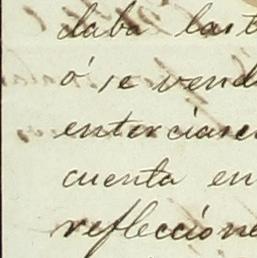 daba last
ó se vend
enterciasen
cuenta en
reflecciones